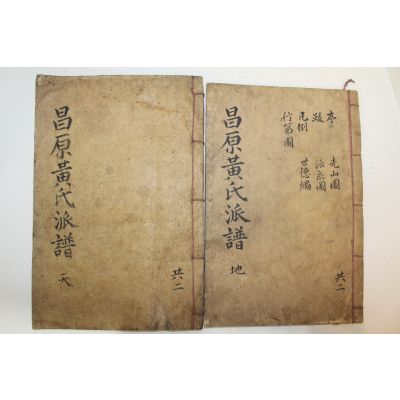 序 先山圖
跋 派系圖
凡例 世德編
行第圖
昌原黃氏派譜 地
共二
昌原黃氏派譜 天
共二